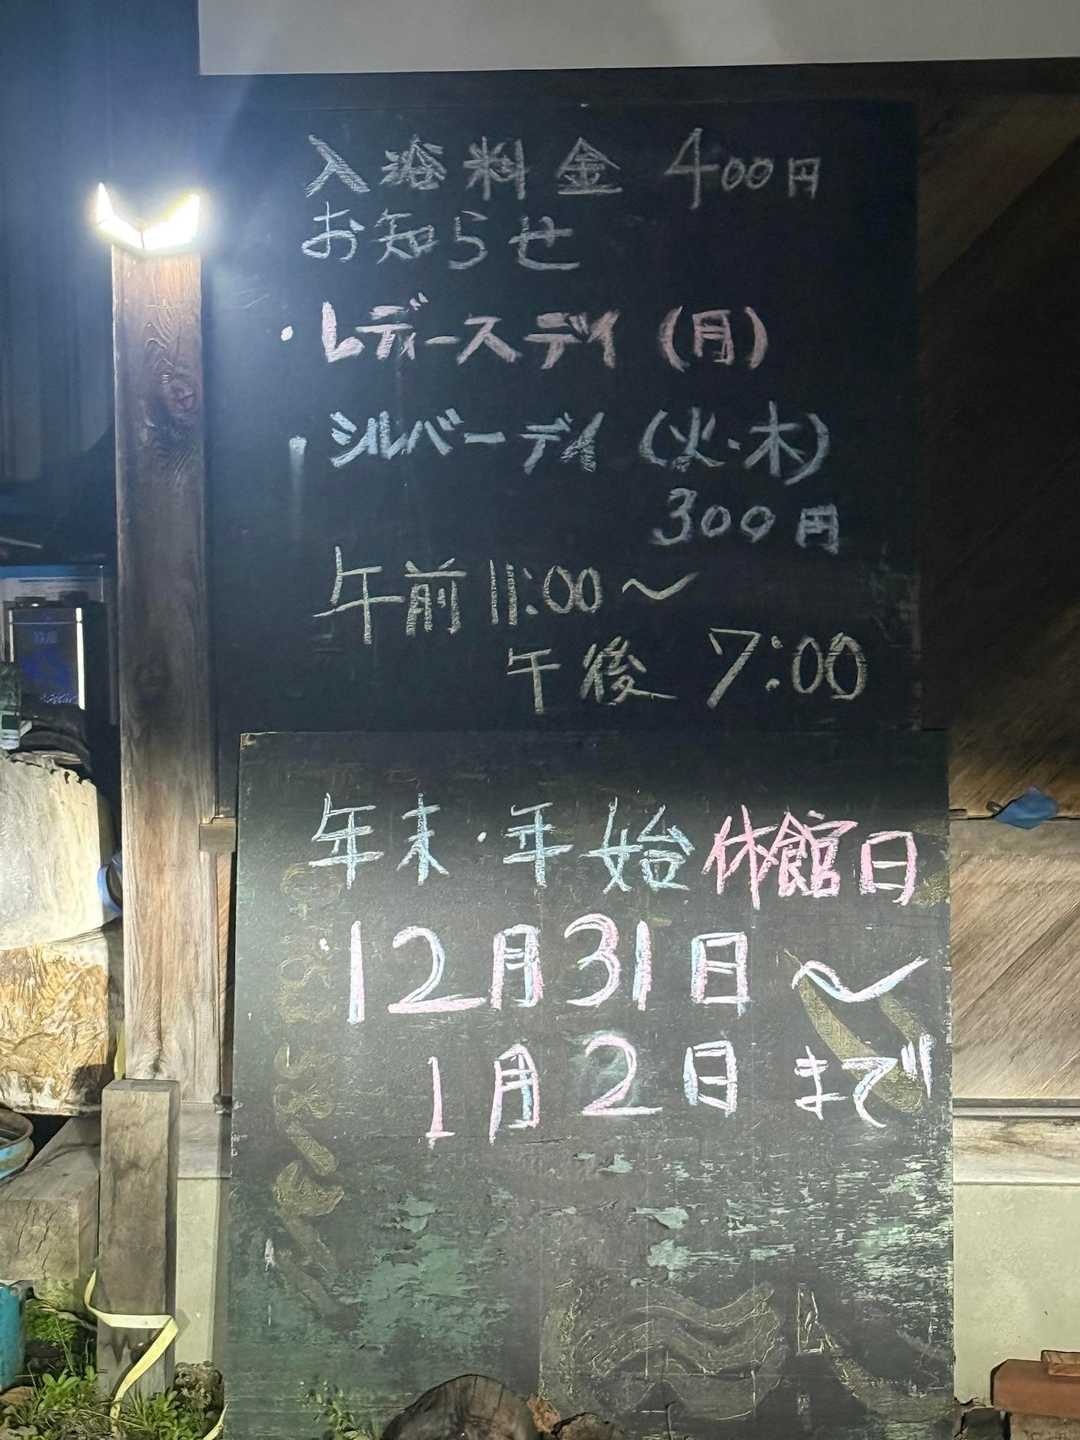 入浴料金 400円
お知らせ
・レディースデイ(月)
・シルバーデイ(火・木)
300円
午前11:00〜
午後7:00
年末・年始休館日
12月31日〜
1月2日まで